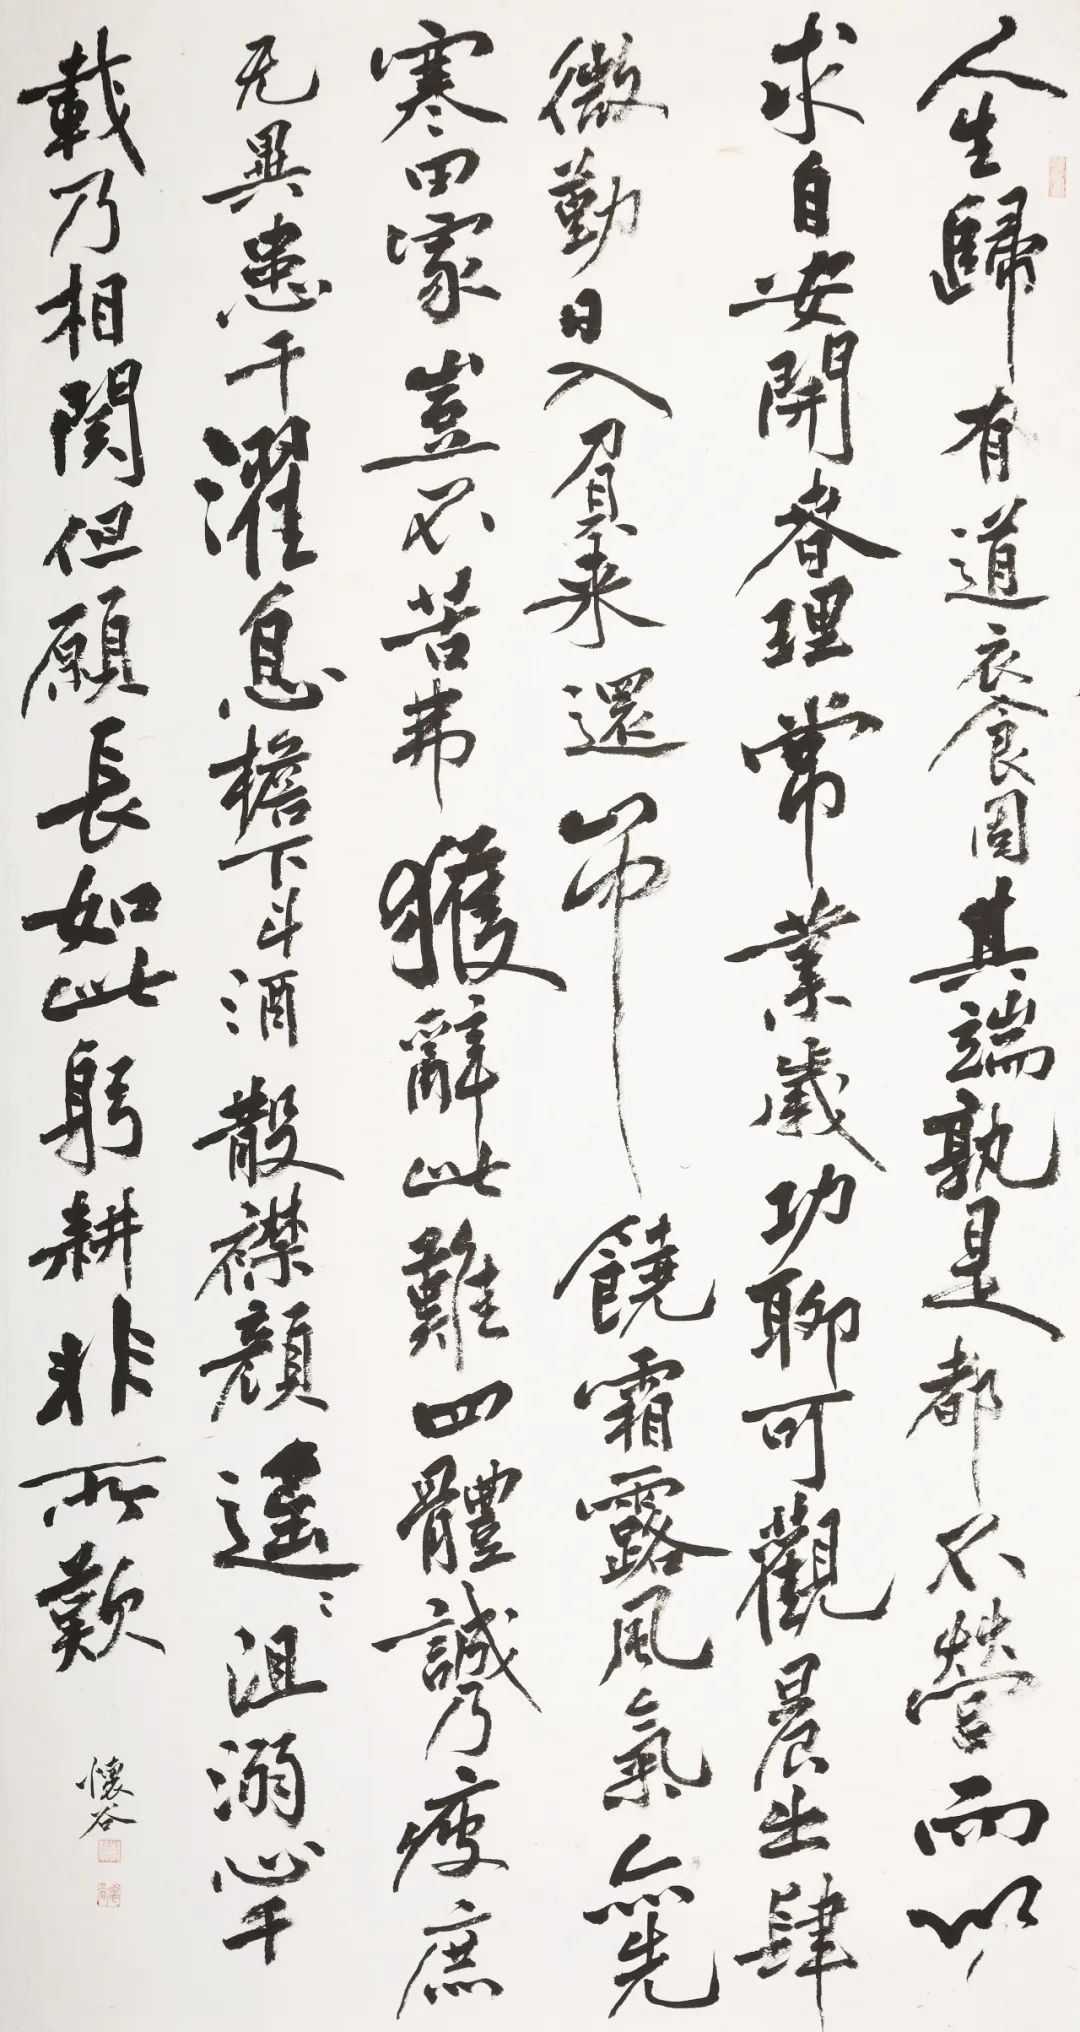 人生歸有道衣食固其端孰是都不營而以
求自安開春理常業歲功聊可觀晨出肆
微勤日入負耒還山中饒霜露風氣亦先
寒田家豈不苦弗獲辭此難四體誠乃疲庶
无異患干濯息檐下斗酒散襟顏遙〻沮溺心千
載乃相関但願長如此躬耕非所歎
懷谷